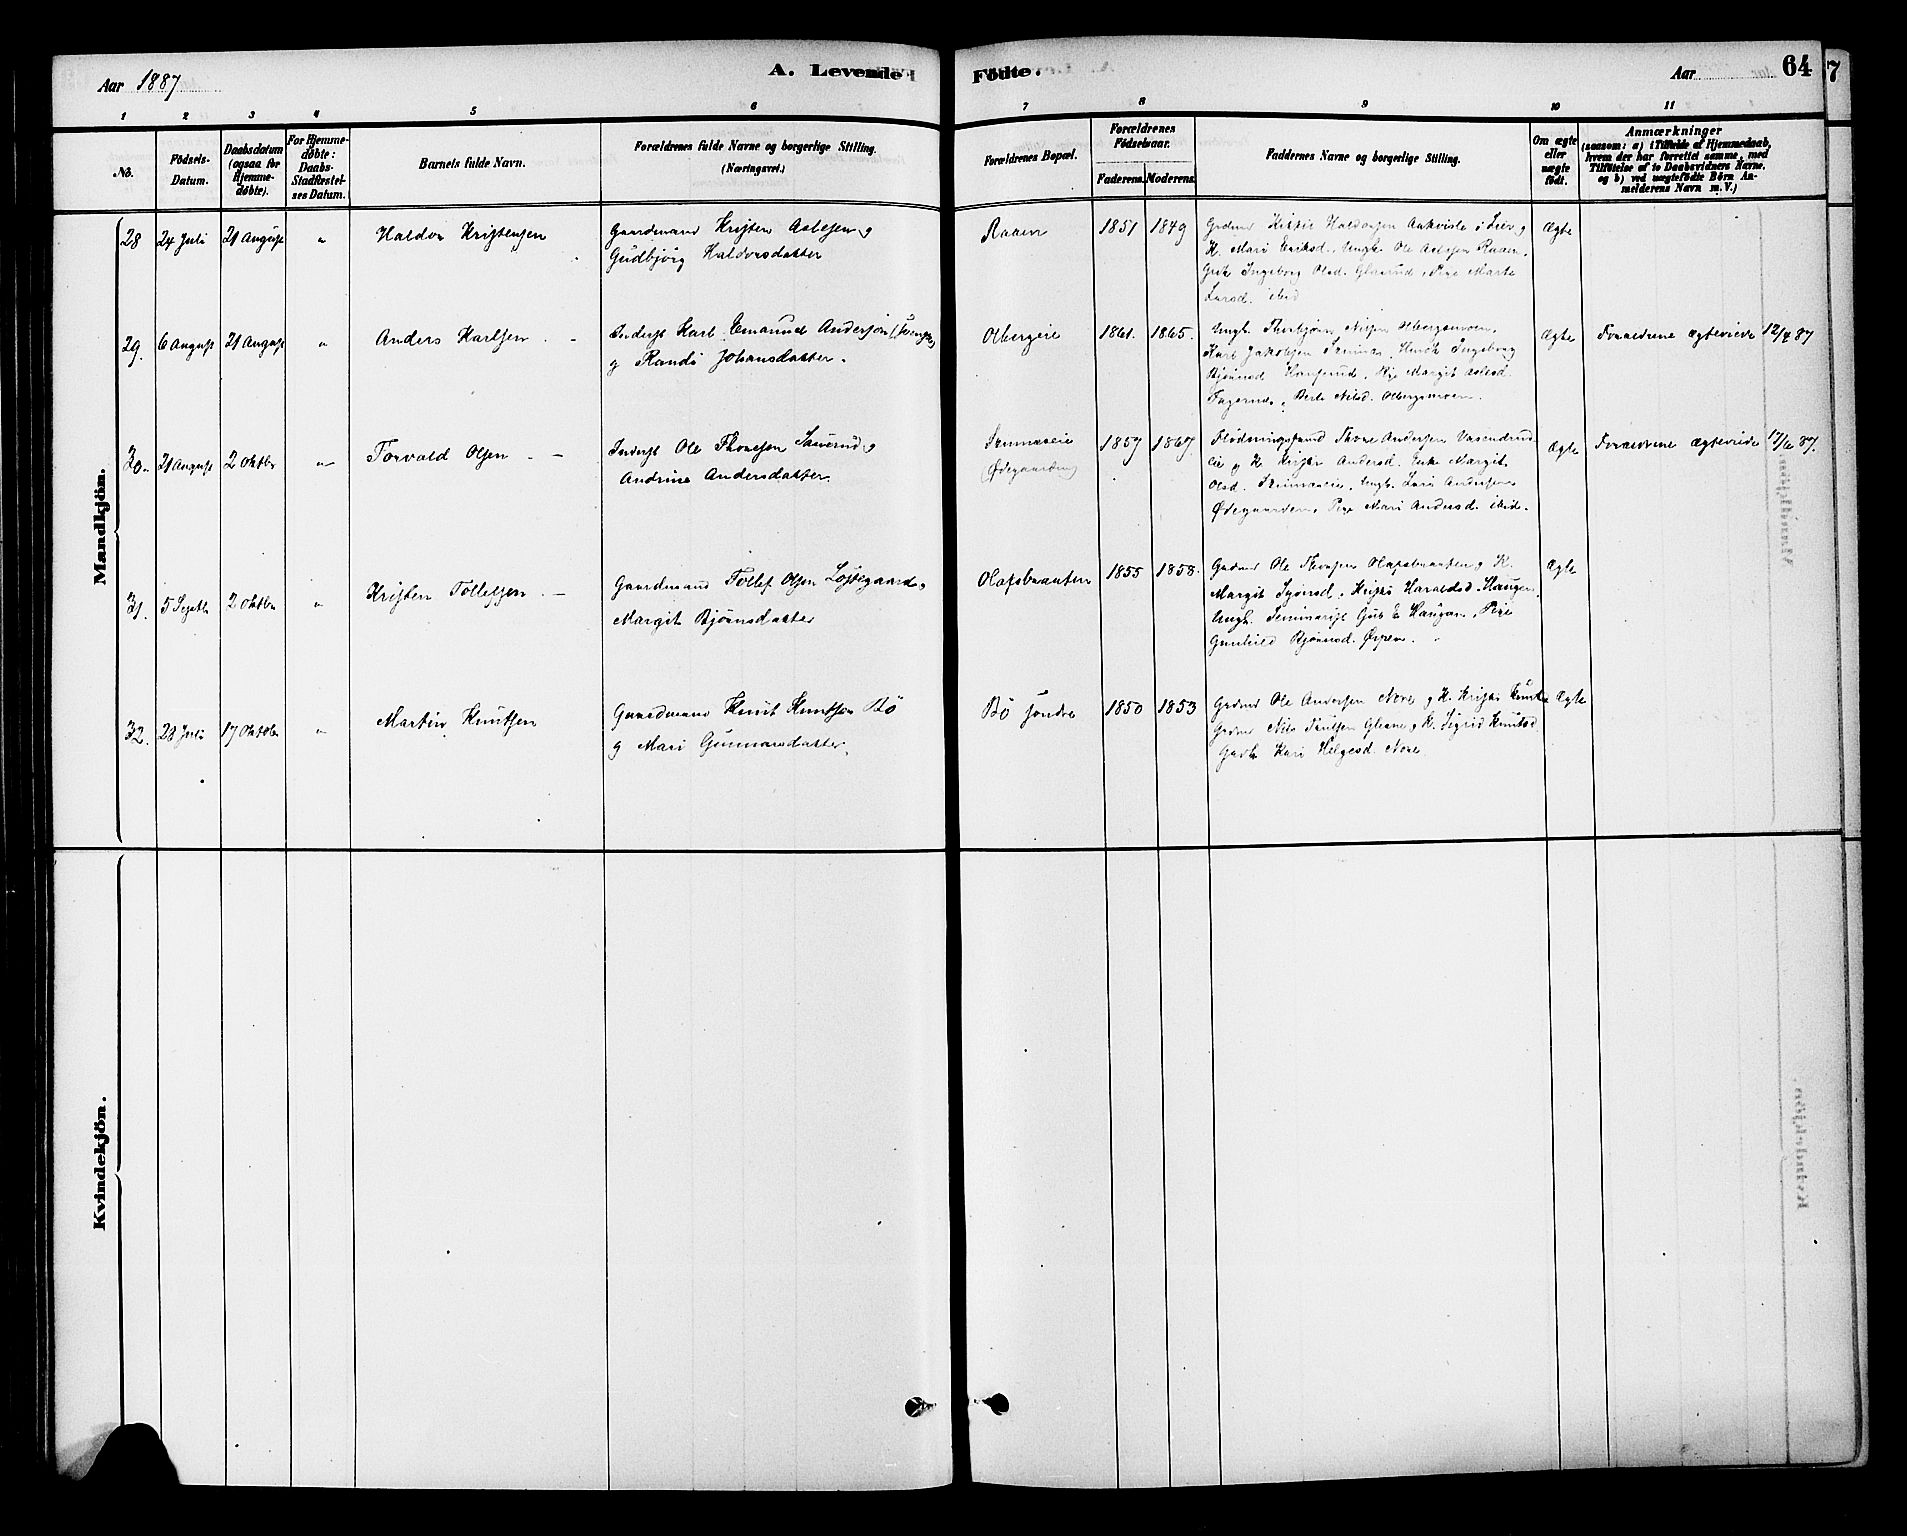 Aar 1887
A. Levende
Fødte.
Aar
64
7
1 2 3 4 5 6 7 8 9 10 11
No.
Fødsels-
Datum.
Daabsdatum
(ogsaa for
Hjemme-
døbte).
For Hjemme-
døbte:
Daabs-
Stadfæstel-
ses Datum.
Barnets fulde Navn.
Forældrenes fulde Navne og borgerlige Stilling.
(Næringsvei.)
Forældrenes Bopæl.
Forældrenes
Fødselsaar.
Faderens. Moderens.
Faddernes Navne og borgerlige Stilling.
Om ægte
eller
uægte
født.
Anmærkninger
(saasom: a) i Tilfælde af Hjemmedaab,
hvem der har forrettet samme, med
Tilføielse af to Daabsvidners Navne,
og b) ved uægtefødte Børn An-
melderens Navn m. V.)
Mandkjön.
28 24 Juli 21 August " Haldor Kristensen
Gaardmand Kristen Aslesen og
Gudbjörg Haldorsdatter
Raaen 1851 1849
Haldorsen i Lier og
K. Mari Eriksd. Ungk. Ole Aslesen Raaen,
Ingeborg Olsd. Glasrud, Pige Marte
Larsd. ibid
Ægte
29. 6 August 21 August " Anders Karlsen -
Inderst Karl Emanuel Anderson
og Randi Johansdatter.
Olbergeie 1861. 1865.
Ungk. Thorbjørn Nilsen Olbergsmoen,
Karl Jakobsen Ingeborg
Bjørnsd. Pige Margit
Berte Nilsd. Olbergsmoen.
Ægte Forældrene ægteviede 12/4 87
30. 21 August 2 Oktbr " Torvald Olsen - -
Inderst Ole Thoresen og
Andrine Andersdatter.
(Ødegaarden) 1857 1867.
Flødningsmand Thore Andersen
eie og K. Andersd. Enke Margit
Olsd. Ungk. Lars Andersen
Ødegaarden, Pige Mari Andersd. ibid.
Ægte Forældrene ægteviede 17/6 87.
31. 5 Septb 2 Oktbr " Kristen Tollefsen. -
Gaardmand Tollef Olsen og
Margit Bjørnsdatter
Olafsbraaten 1855 1858.
Gaardmd Ole Thoresen Olafsbraaten og K.
Margit Haraldsd. Haugen,
Ungk. Seminarist E Haugan, Pige
Gunhild Bjørnsd.
Ægte
32. 28 Juli 17 Oktobr " Martin Knutsen
Gaardmand Knut Knutsen Bö
og Mari Gunnarsdatter.
Bö söndre 1850 1853
Gaardmd Ole Andersen Nore og K.
Gaardmd Nils og K. Sigrid Knutsd
Kari Helgesd. Nore
Ægte
Kvindekjön.